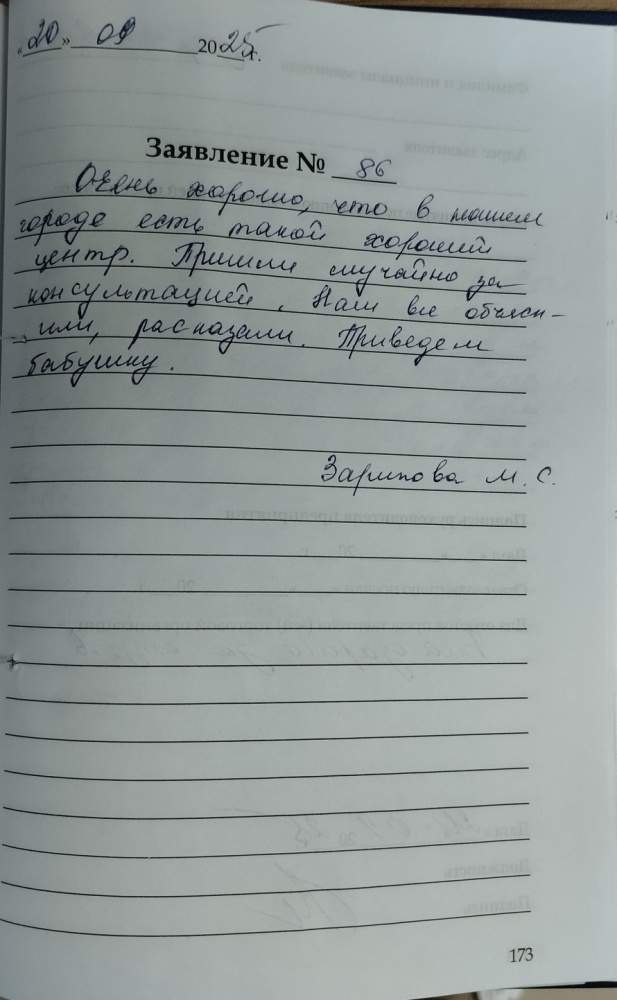 «20» 09 2025г.
Заявление № 86
Очень хорошо, что в нашем
городе есть такой хороший
центр. Пришли случайно за
консультацией. Нам все объясн-
или, расказали. Приведем
бабушку.
Зарипова М. С.
173